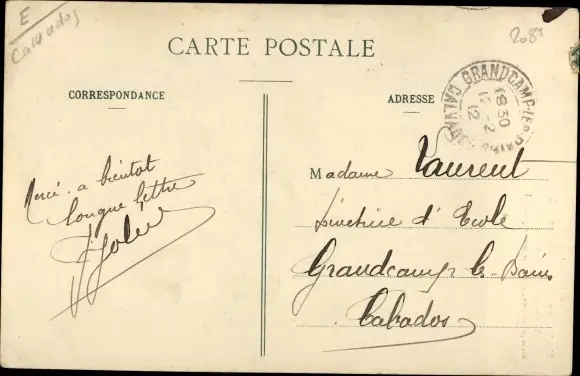 E
Calvados
2087
CARTE POSTALE
CORRESPONDANCE
ADRESSE
GRANDCAMP-LES-BAINS
CALVADOS
18 30
12 - 2
12
Merci. a bientôt
longue lettre
Madame Laurent
Directrice d'Ecole
Grandcamp les-bains
Calvados